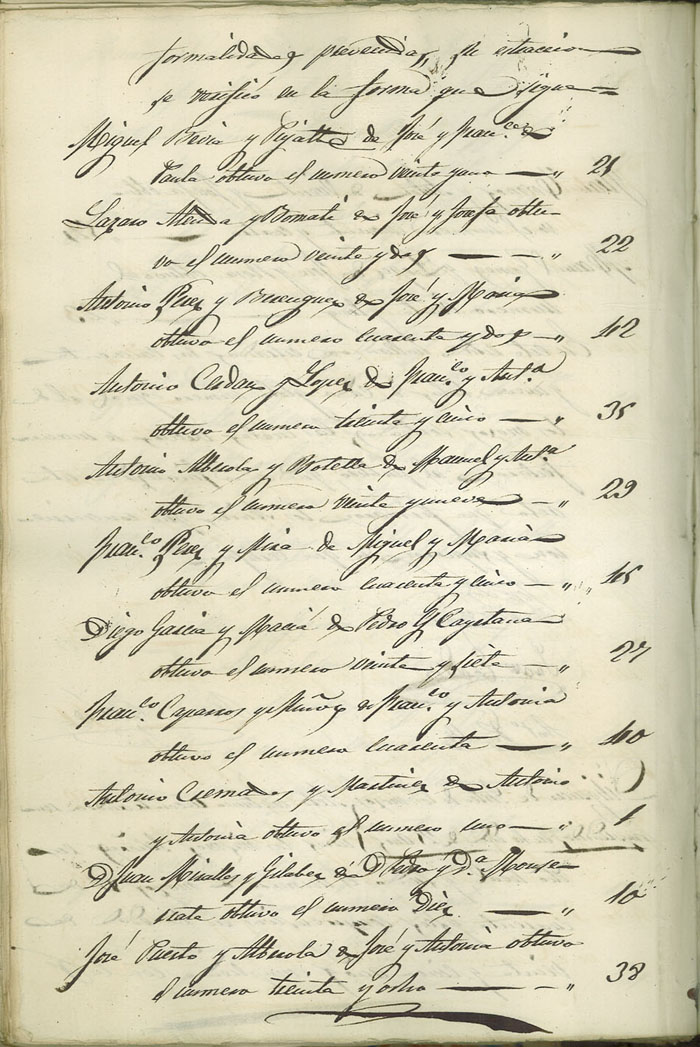 formalidades prevenidas, su estraccion
se verificó en la forma que sigue =
Miguel Bevia y Pujalte de José y Fran.ca de
Paula obtuvo el numero veinte y uno — " 21
Lazaro y Bernabé de José y Josefa obtu-
vo el numero veinte y dos — — " 22
Antonio Perez y Berenguer de José y Maria
obtuvo el numero cuarenta y dos — " 42
Antonio Cerdan y Lopez de Fran.co y Ant.a
obtuvo el numero treinta y cinco — " 35
Antonio Alberola y Botella de Manuel y Ant.a
obtuvo el numero veinte y nueve — " 29
Fran.co Perez y Mira de Miguel y Maria
obtuvo el numero cuarenta y cinco — " 45
Diego Garcia y Maciá de Pedro y Cayetana
obtuvo el numero veinte y siete — " 27
Fran.co Caparros y Muñoz de Fran.co y Antonia
obtuvo el numero cuarenta — " 40
Antonio Cremades y Martinez de Antonio
y Antonia obtuvo el numero uno — " 1
D. Juan Miralles y Gilabert de D. Pedro y D.a Monse-
rrate obtuvo el numero Diez — " 10
José Puerto y Alberola de José y Antonia obtuvo
el numero treinta y ocho — — " 38